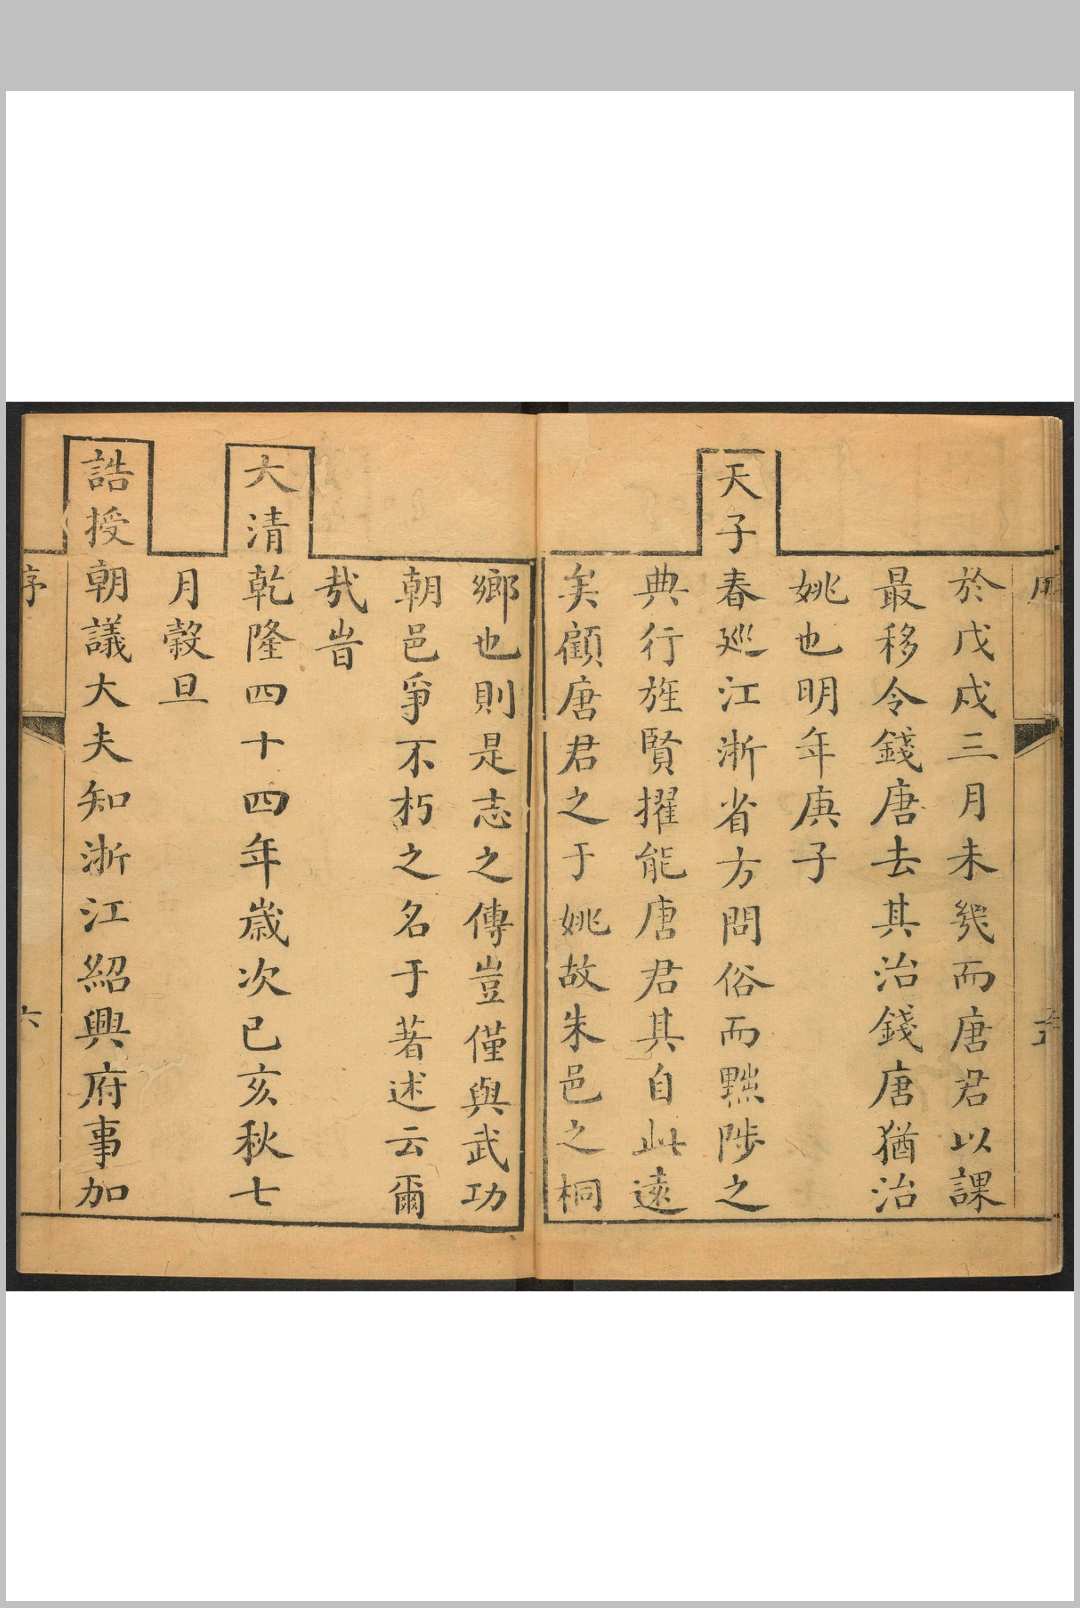 於戊戌三月未幾而唐君以課
最移令錢唐去其治錢唐猶治
姚也明年庚子
天子春廵江浙省方問俗而黜陟之
典行旌賢擢能唐君其自此遠
矣顧唐君之于姚故朱邑之桐
鄉也則是志之傳豈僅與武功
朝邑爭不朽之名于著述云爾
㢤旹
大清乾隆四十四年歲次己亥秋七
月穀旦
誥授朝議大夫知浙江紹興府事加
序
六